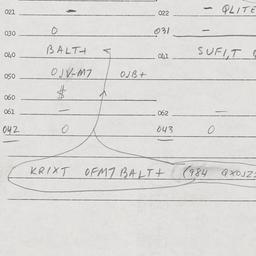 021 - 022 - QLITE
030 0 031 -
040 BALT+ 041 SUFI,T
050 OJV-M7 OJB+
060 $
061 - 062 -
042 0 043 0
KRIXT OFM7 BALT+ (984 QXOJZ